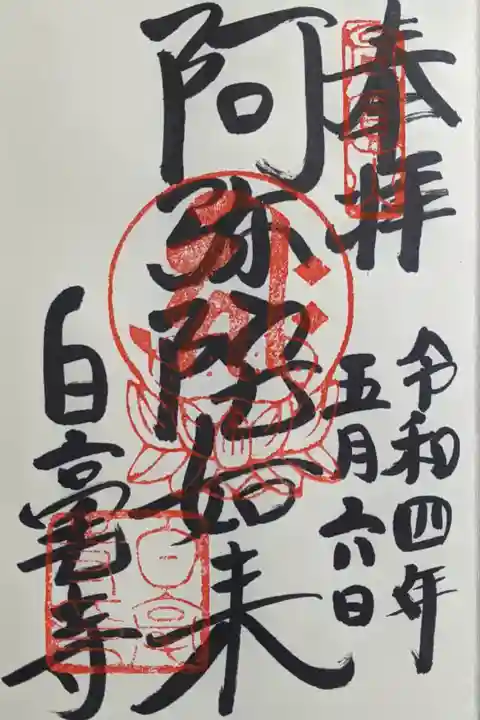 奉拝
令和四年
五月六日
阿弥陀如来
白毫寺